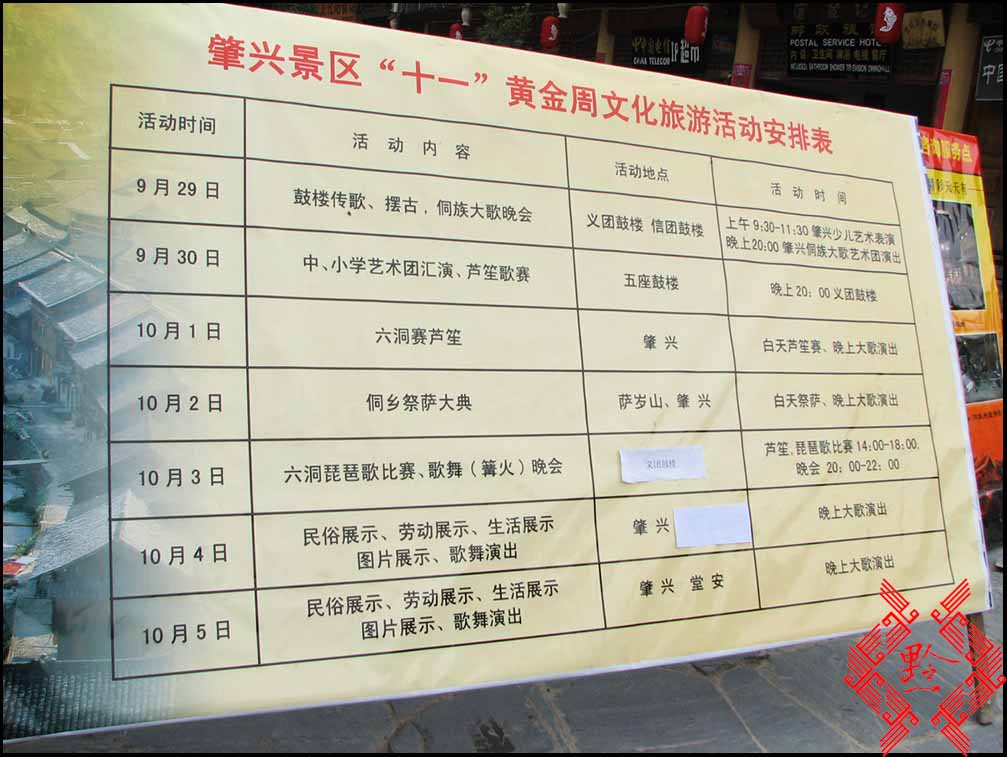 肇兴景区“十一”黄金周文化旅游活动安排表
活动时间 活动内容 活动地点 活动时间
9月29日 鼓楼传歌、摆古,侗族大歌晚会 义团鼓楼 信团鼓楼 上午9:30-11:30肇兴少儿艺术表演
晚上20:00肇兴侗族大歌艺术团演出
9月30日 中、小学艺术团汇演、芦笙歌赛 五座鼓楼 晚上20:00义团鼓楼
10月1日 六洞赛芦笙 肇兴 白天芦笙赛、晚上大歌演出
10月2日 侗乡祭萨大典 萨岁山、肇兴 白天祭萨、晚上大歌演出
10月3日 六洞琵琶歌比赛、歌舞(篝火)晚会 义团鼓楼 芦笙,琵琶歌比赛14:00-18:00,
晚会 20:00-22:00
10月4日 民俗展示、劳动展示、生活展示
图片展示、歌舞演出 肇兴 晚上大歌演出
10月5日 民俗展示、劳动展示、生活展示
图片展示、歌舞演出 肇兴 堂安 晚上大歌演出
中国电信
CHINA TELECOM
POSTAL SERVICE HOTEL
咨询服务点
中国
黔